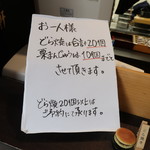 お一人様
どら焼は合計20個
栗まんじゅうは10個まで
させて頂きます。
どら焼20個以上は
ご予約にて承ります。